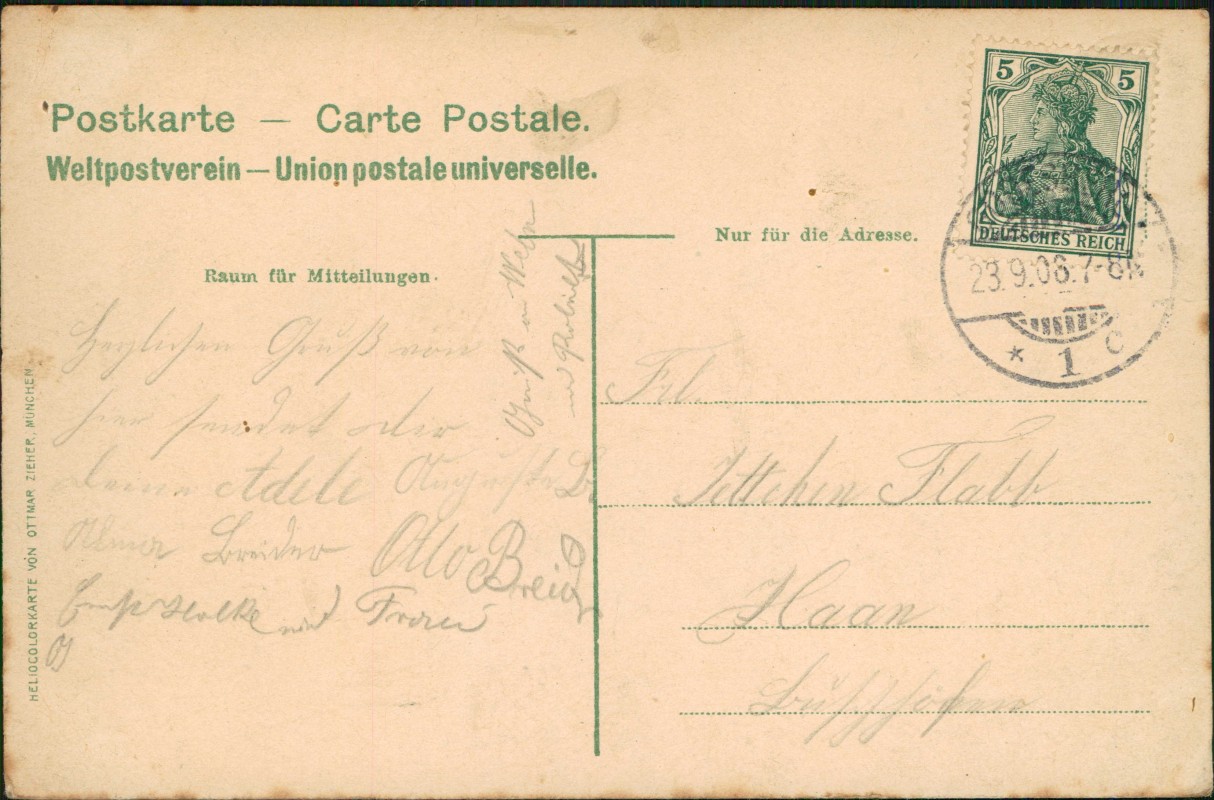 Postkarte — Carte Postale.
Weltpostverein — Union postale universelle.
Nur für die Adresse.
Raum für Mitteilungen.
5 5
DEUTSCHES REICH
23.9.06.7-8N
* 1 c
Herzlichen Gruß von
hier sendet dir
deine Adele Augusta
Alma Breider Otto Breid
und Frau
Gruß
Frl.
Jettchen Flabb
Haan
HELIOCOLORKARTE VON OTTMAR ZIEHER, MÜNCHEN